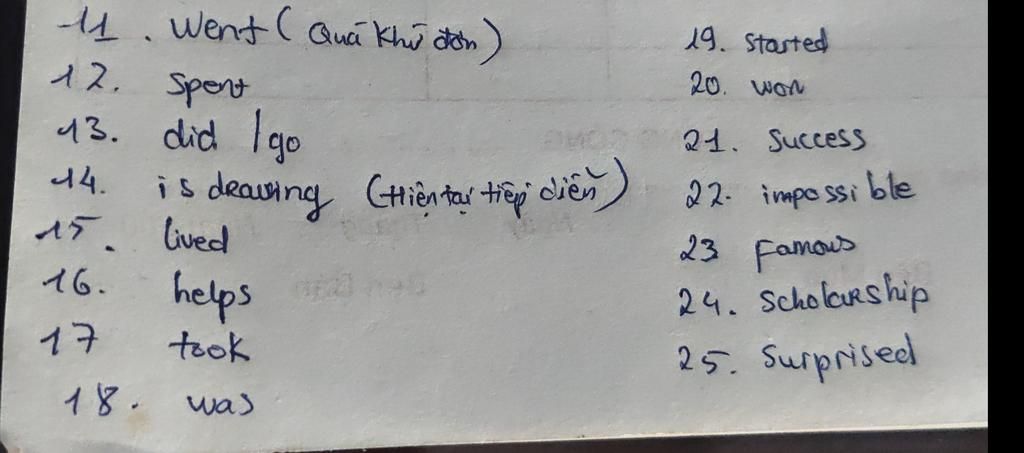 11. Went (Quá khứ đơn)
12. Spent
13. did / go
14. is drawing (Hiện tại tiếp diễn)
15. lived
16. helps
17 took
18. was
19. started
20. won
21. Success
22. impossible
23 Famous
24. Scholarship
25. Surprised